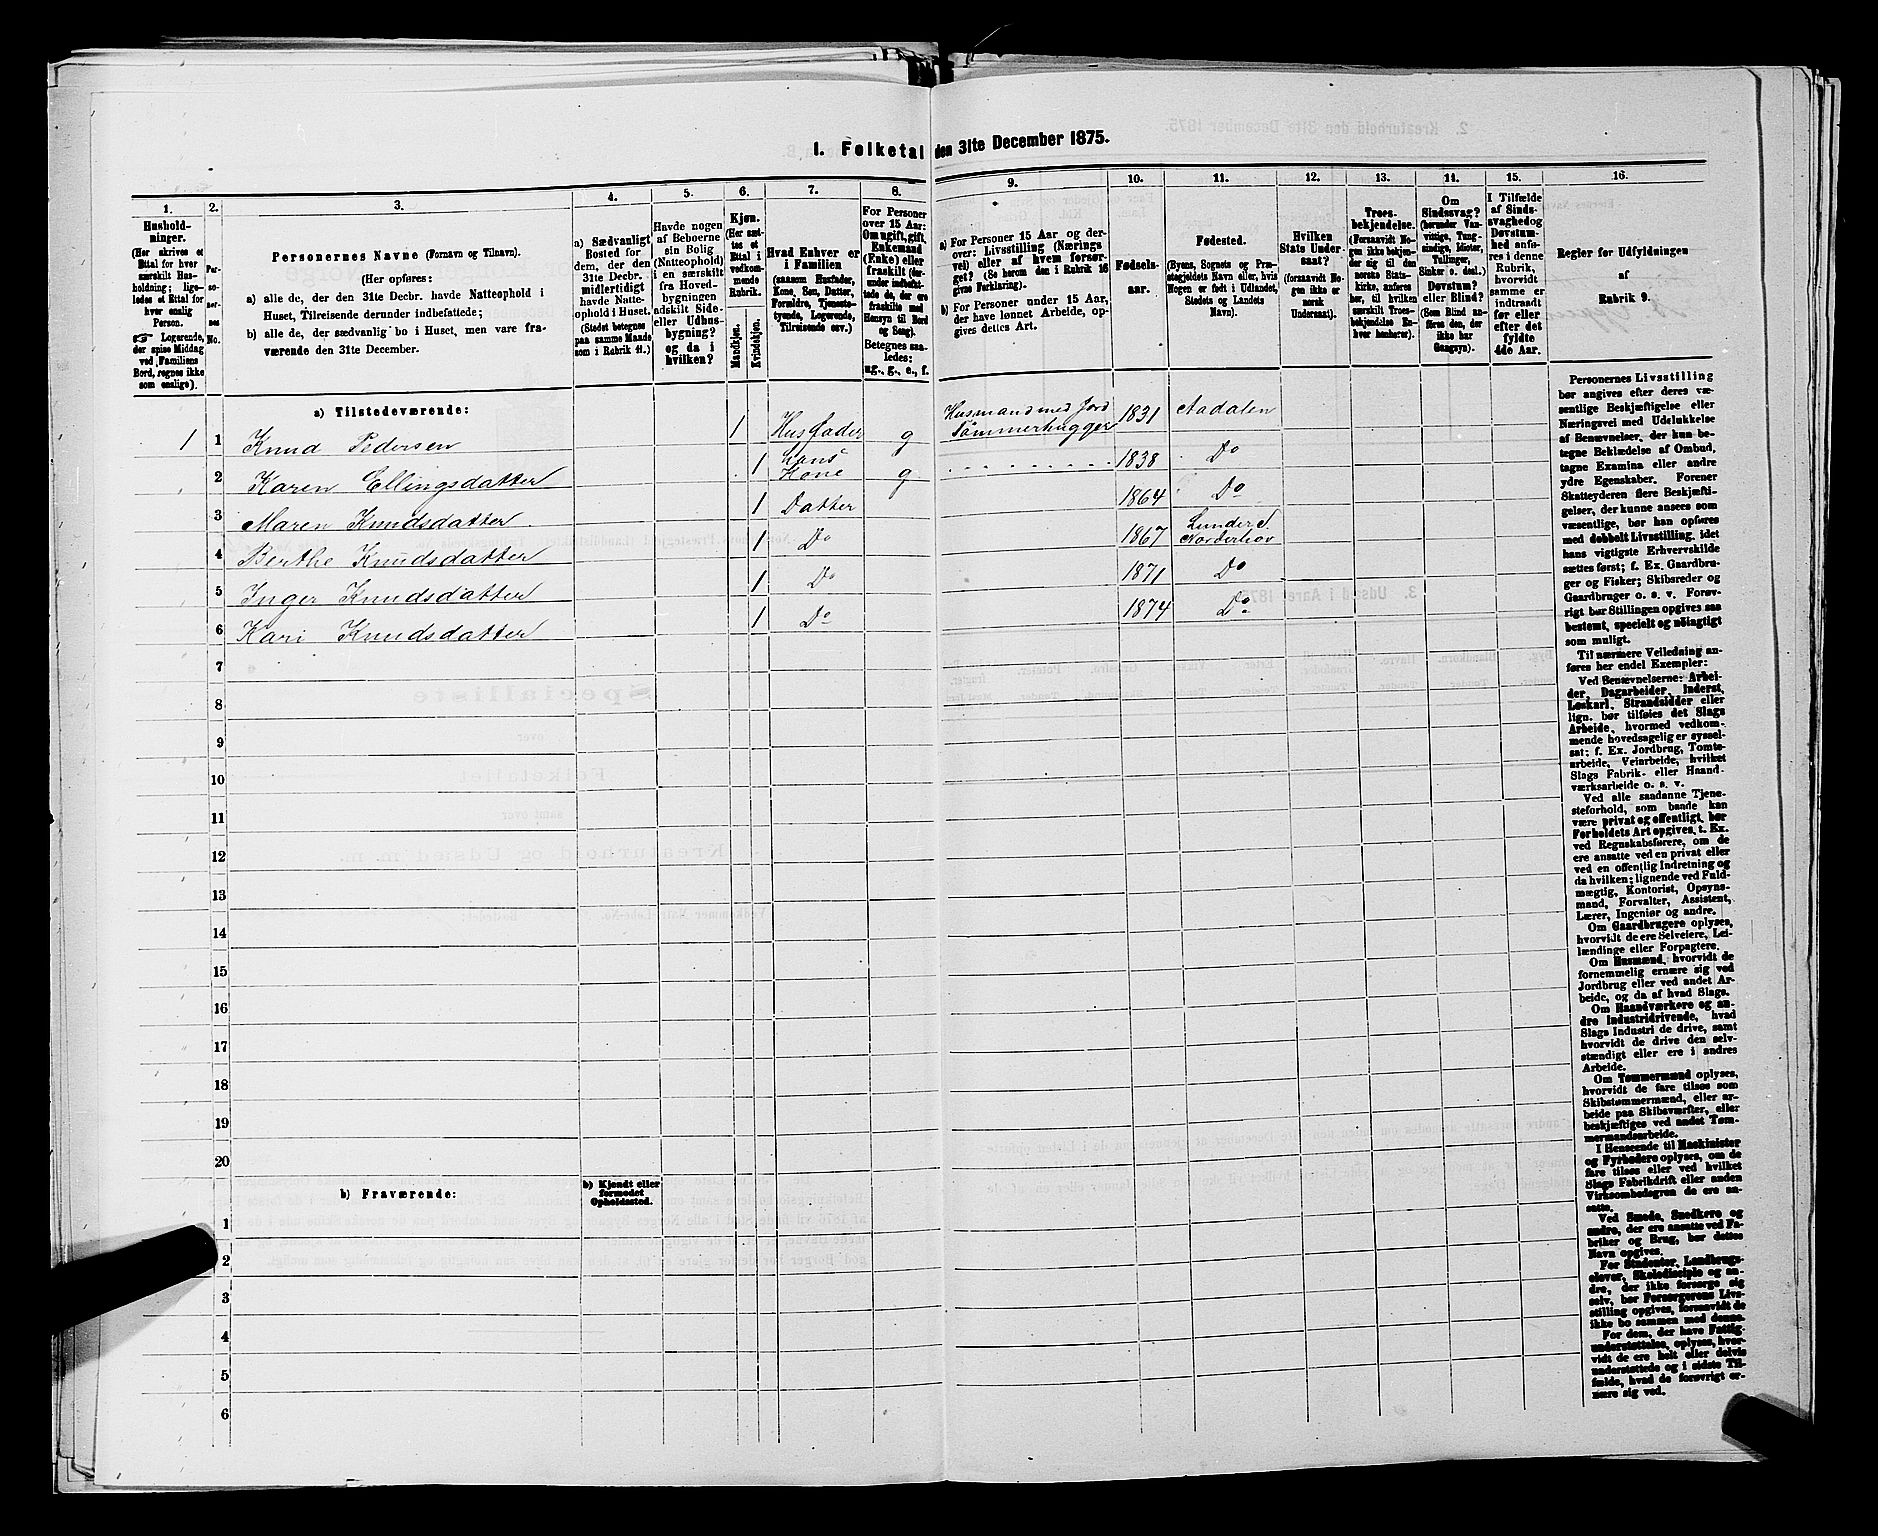 1. Folketal den 31te December 1875.
1. 2. 3. 4. 5. 6. 7. 8. 9. 10. 11. 12. 13. 14. 15. 16.
Hushold-
ninger.
(Her skrives et
Ettal for hver
særskilt Hus-
holdning; lige-
ledes et Ettal for
hver enslig
Person.
☞ Logerende,
der spise Middag
ved Familiens
Bord, regnes ikke
som enslige).
Per-
so-
ner-
nes
No.
Personernes Navne (Fornavn og Tilnavn).
(Her opføres:
a) alle de, der den 31te Decbr. havde Natteophold i
Huset, Tilreisende derunder indbefattede;
b) alle de, der sædvanlig bo i Huset, men vare fra-
værende den 31te December.
a) Sædvanligt
Bosted for
dem, der den
31te Decbr.
midlertidigt
havde Natte-
ophold i Huset.
(Stedet betegnes
paa samme Maade
som i Rubrik 11.)
Havde nogen
af Beboerne
sin Bolig
(Natteophold)
i en særskilt
fra Hoved-
bygningen
adskilt Side-
eller Udhus-
bygning?
og da i
hvilken?
Kjøn.
(Her sæt-
tes et
Ettal i
vedkom-
mende
Rubrik.
Mandkjøn.
Kvindekjøn.
Hvad Enhver er
i Familien
(saasom Husfader,
Kone, Søn, Datter,
Forældre, Tjeneste-
tyende, Logerende,
Tilreisende osv.)
For Personer
over 15 Aar:
Om ugift, gift,
Enkemand
(Enke) eller
fraskilt (der-
under indbefat-
tede de, der ere
fraskilte med
Hensyn til Bord
og Seng).
Betegnes saa-
ledes:
ug., g., e., f.
a) For Personer 15 Aar og der-
over: Livsstilling (Nærings
vei) eller af hvem forsør-
get? (Se herom den i Rubrik 16
givne Forklaring).
b) For Personer under 15 Aar,
der have lønnet Arbeide, op-
gives dettes Art.
Fødsels-
aar.
Fødested.
(Byens, Sognets og Præ-
stegjeldets Navn eller, hvis
Nogen er født i Udlandet,
Stedets og Landets
Navn).
Hvilken
Stats Under-
saat?
(forsaavidt No-
gen ikke er
norsk
Undersaat).
Troes-
bekjendelse.
(Forsaavidt No-
gen ikke bekjen-
der sig til den
norske Stats-
kirke, anføres
her, til hvilken
særskilt Troes-
bekjendelse En-
hver henhører).
Om
Sindssvag?
(herunder Van-
vittige, Tung-
sindige, Idioter,
Tullinger,
Sinker o. desl.)
Døvstum?
eller Blind?
(Som Blind an-
føres den, der
ikke har
Gangsyn).
I Tilfælde
af Sinds-
svaghed og
Døvstum-
hed anfø-
res i denne
Rubrik,
hvorvidt
samme er
indtraadt
før eller
efter det
fyldte
4de Aar.
Regler for Udfyldningen
af
Rubrik 9.
a) Tilstedeværende:
1 1 Knud Pedersen 1 Husfader g Husmand med Jord Tømmerhugger 1831 Aadalen
2 Karen Ellingsdatter 1 hans Kone g 1838 Do
3 Maren Knudsdatter 1 Datter 1864 Do
4 Berthe Knudsdatter 1 Do 1867 Lunder S. Norderhov
5 Inger Knudsdatter 1 Do 1871 Do
6 Kari Knudsdatter 1 Do 1874 Do
7
8
9
10
11
12
13
14
15
16
17
18
19
20
b) Fraværende:
b) Kjendt eller
formodet
Opholdssted.
1
2
3
4
5
6
Personernes Livsstilling
bør angives efter deres væ-
sentlige Beskjæftigelse eller
Næringsvei med Udelukkelse
af Benævnelser, der kun be-
tegne Beklædelse af Ombud,
tagne Examina eller andre
ydre Egenskaber. Forener
Skatteyderen flere Beskjæfti-
gelser, der kunne ansees som
væsentlige, bør han opføres
med dobbelt Livsstilling, idet
hans vigtigste Erhvervskilde
sættes først; f. Ex. Gaardbru-
ger og Fisker; Skibsreder og
Gaardbruger o. s. v. Forøv-
rigt bør Stillingen opgives saa
bestemt, specielt og nøiagtigt
som muligt.
Til nærmere Veiledning an-
føres her endel Exempler:
Ved Benævnelserne: Arbei-
der, Dagarbeider, Inderst,
Løskarl, Strandsidder eller
lign. bør tilføies det Slags
Arbeide, hvormed vedkom-
mende hovedsagelig er syssel-
sat; f. Ex. Jordbrug, Tomte-
arbeide, Veiarbeide, hvilket
Slags Fabrik- eller Haand-
værksarbeide o. s. v.
Ved alle saadanne Tjene-
steforhold, som baade kan
være privat og offentligt, bør
Forholdets Art opgives, t. Ex.
ved Regnskabsførere, om de
ere ansatte ved en privat eller
ved en offentlig Indretning og
da hvilken; lignende ved Fuld-
mægtig, Kontorist, Opsyns-
mand, Forvalter, Assistent,
Lærer, Ingeniør og andre.
Om Gaardbrugere oplyses,
hvorvidt de ere Selveiere, Lei-
lændinge eller Forpagtere.
Om Husmænd, hvorvidt de
fornemmelig ernære sig ved
Jordbrug eller ved andet Ar-
beide, og da af hvad Slags.
Om Haandværkere og an-
dre Industridrivende, hvad
Slags Industri de drive, samt
hvorvidt de drive den selv-
stændigt eller ere i andres
Arbeide.
Om Tømmermænd oplyses,
hvorvidt de fare tilsøs som
Skibstømmermænd, eller ar-
beide paa Skibsværfter, eller
beskjæftiges ved andet Tøm-
mermandsarbeide.
I Henseende til Maskinister
og Fyrbødere oplyses, om de
fare tilsøs eller ved hvilket
Slags Fabrikdrift eller anden
Virksomhed de ere an-
satte.
Ved Smede, Snedkere og
andre, der ere ansatte ved Fa-
briker og Brug, bør dettes
Navn opgives.
For Studenter, Landbrugs-
elever, Skoledisciple og an-
dre, der ikke forsørge sig
selv, bør Forsørgerens Livs-
stilling opgives, forsaavidt de
ikke bo sammen med denne.
For dem, der have Fattig-
understøttelse, oplyses, hvor-
vidt de ere helt eller delvis
understøttede og i sidste Til-
fælde, hvad de forøvrigt er-
nære sig ved.